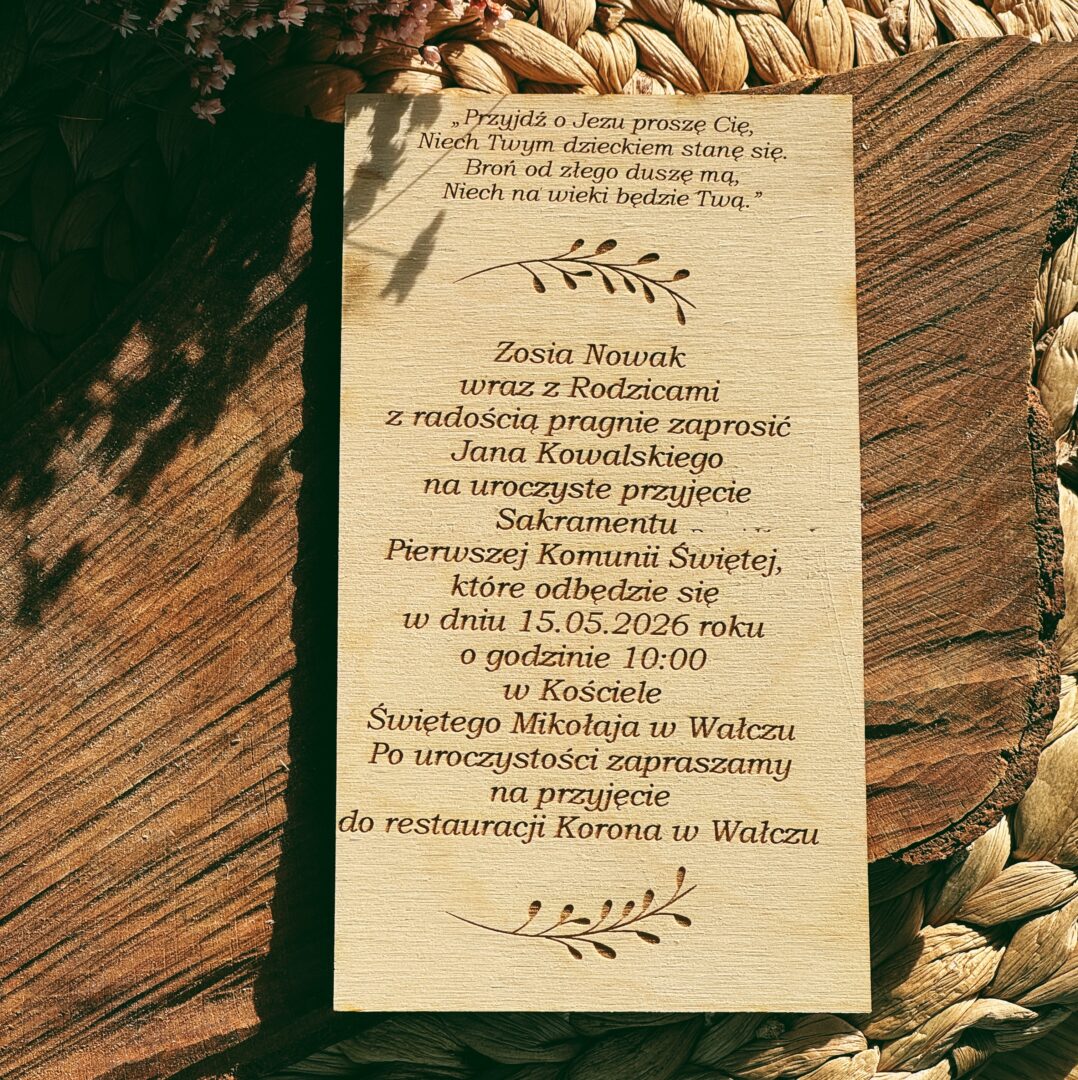 „Przyjdź o Jezu proszę Cię,
Niech Twym dzieckiem stanę się.
Broń od złego duszę mą,
Niech na wieki będzie Twą.”
Zosia Nowak
wraz z Rodzicami
z radością pragnie zaprosić
Jana Kowalskiego
na uroczyste przyjęcie
Sakramentu
Pierwszej Komunii Świętej,
które odbędzie się
w dniu 15.05.2026 roku
o godzinie 10:00
w Kościele
Świętego Mikołaja w Wałczu
Po uroczystości zapraszamy
na przyjęcie
do restauracji Korona w Wałczu